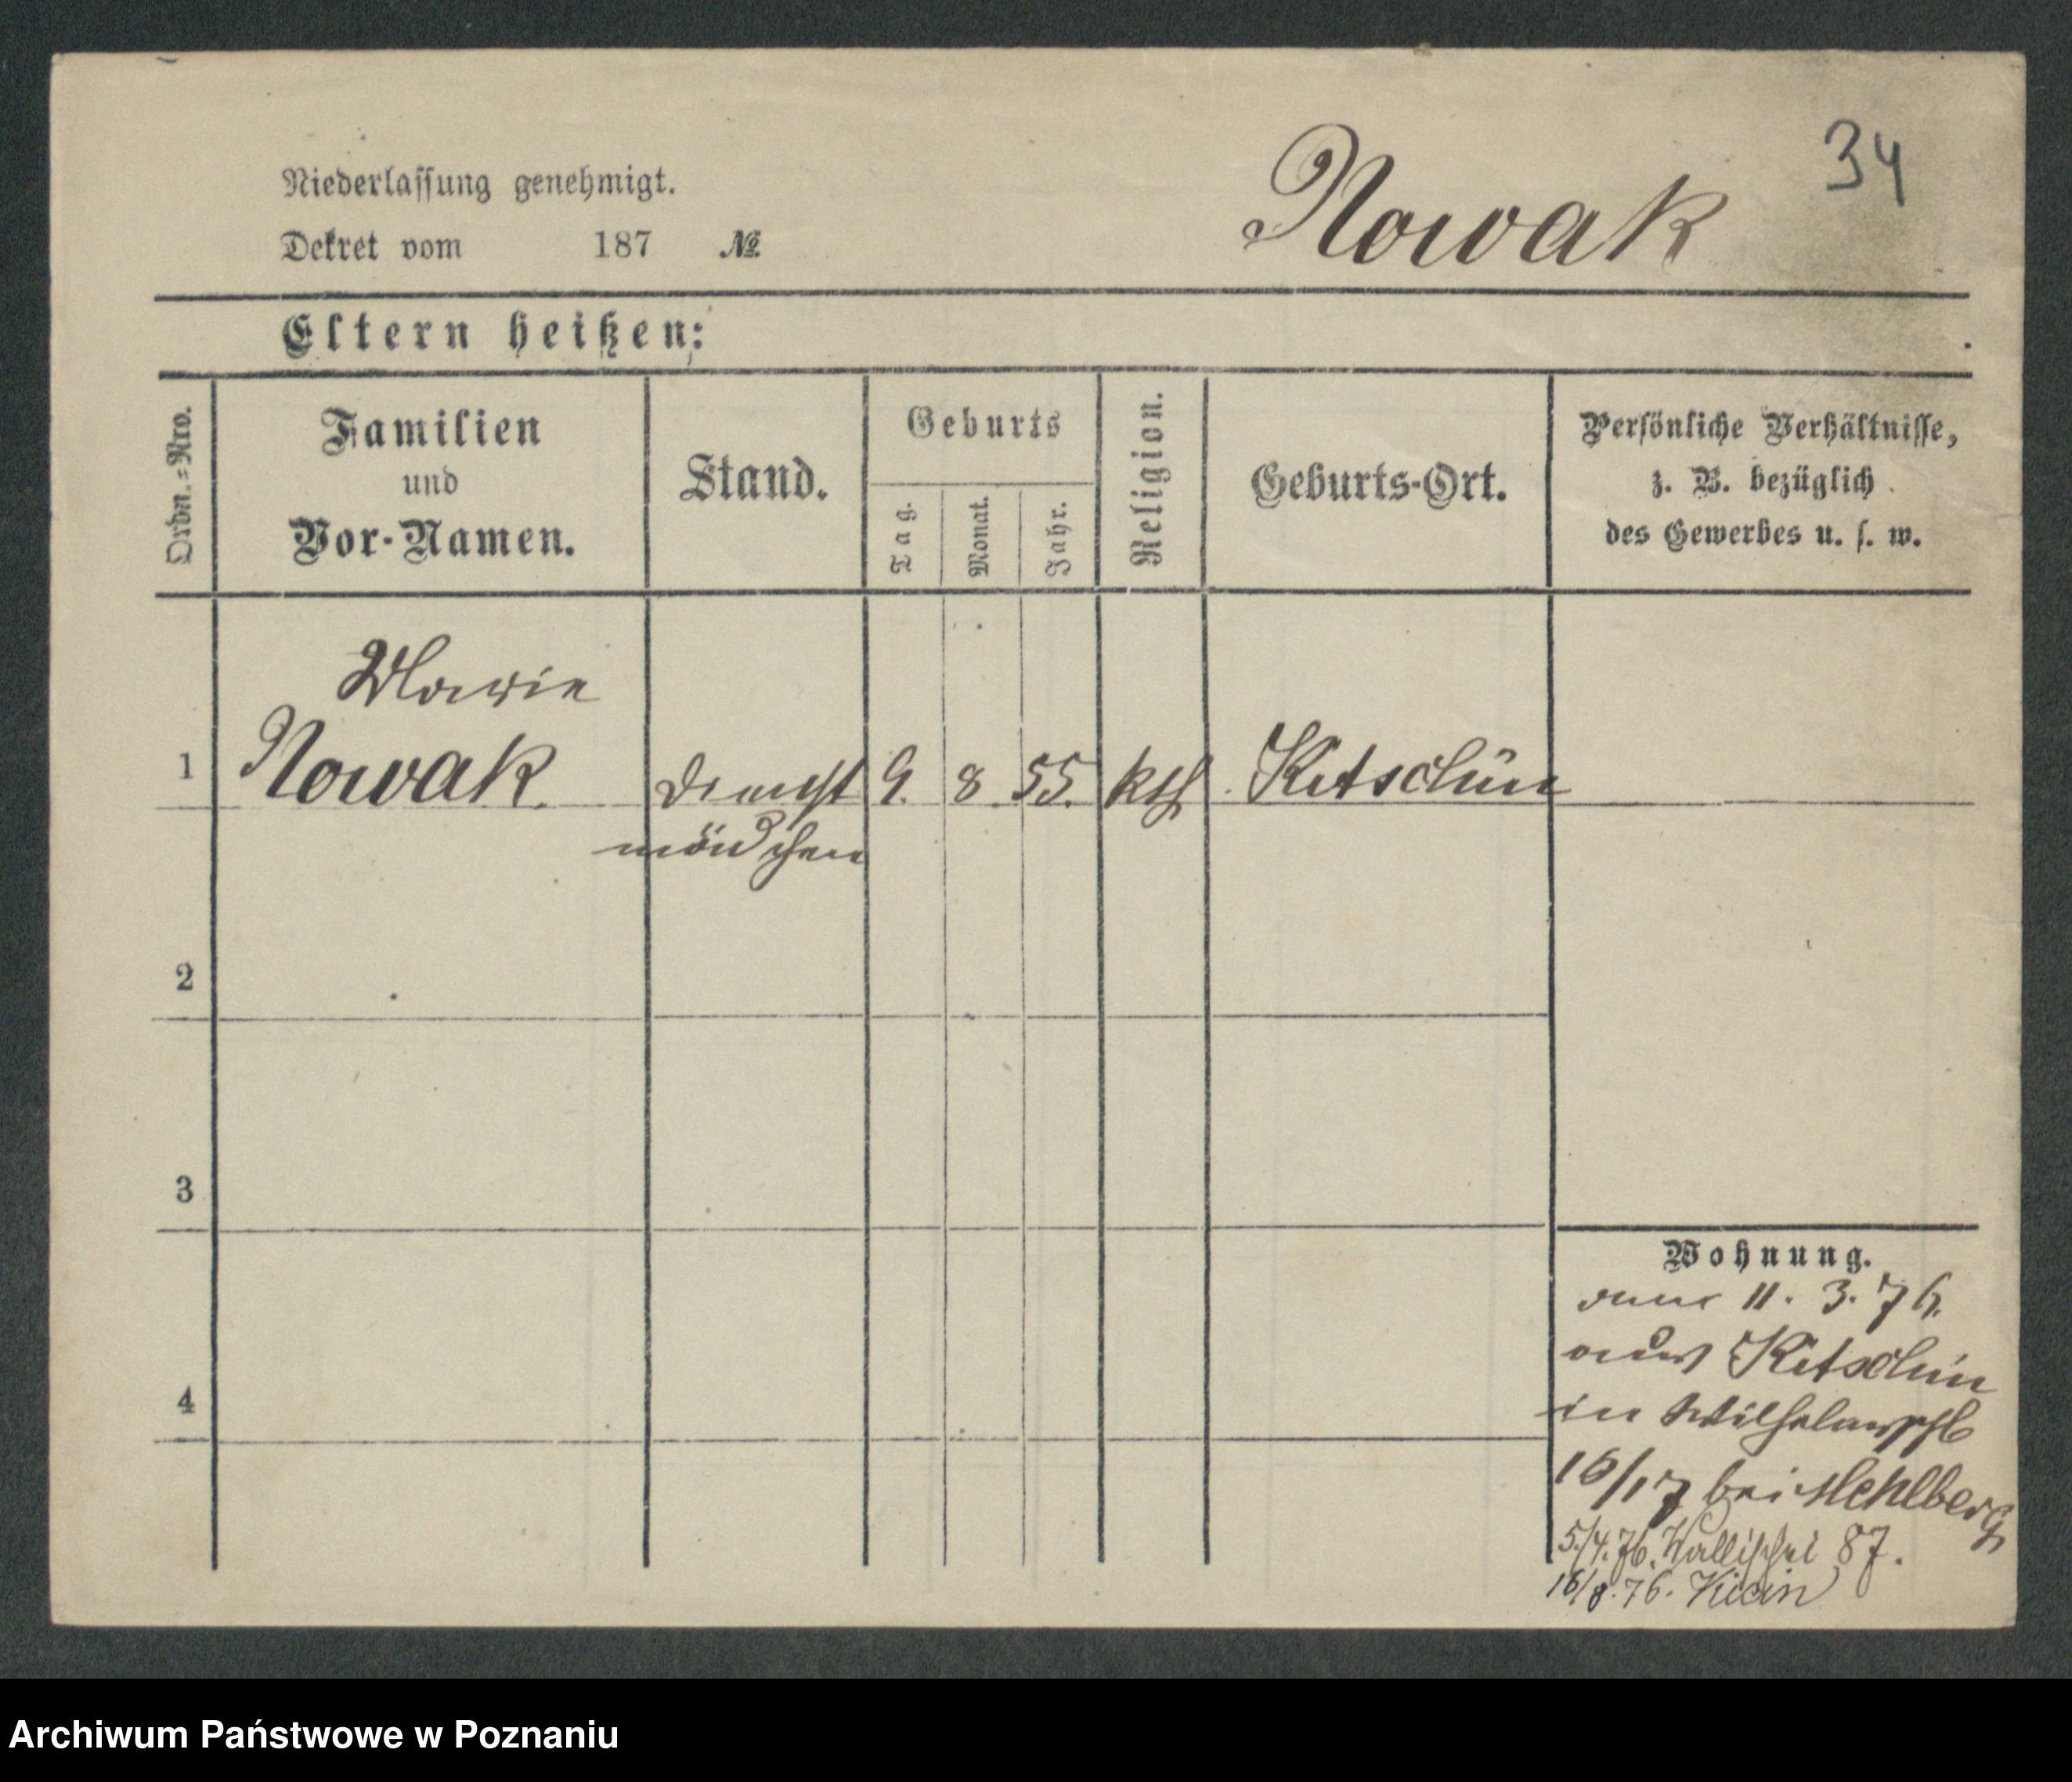 34
Nowak
Niederlassung genehmigt.
Dekret vom 187 №
Eltern heißen:
Ordn.=Nro.
Familien
und
Vor-Namen.
Stand.
Geburts
Tag.
Monat.
Jahr.
Religion.
Geburts-Ort.
Persönliche Verhältnisse,
z. B. bezüglich
des Gewerbes u. s. w.
Marie
1 Nowak. Dienst 9. 8. 55. kth Kitschin
mädchen
2
3
4
Wohnung.
11. 3. 76.
aus Kitschin
in Wilhelmspl
16/17 bei Mehlberg
5/4. 76. Wallischei 87.
16/8. 76. Kicin
Archiwum Państwowe w Poznaniu